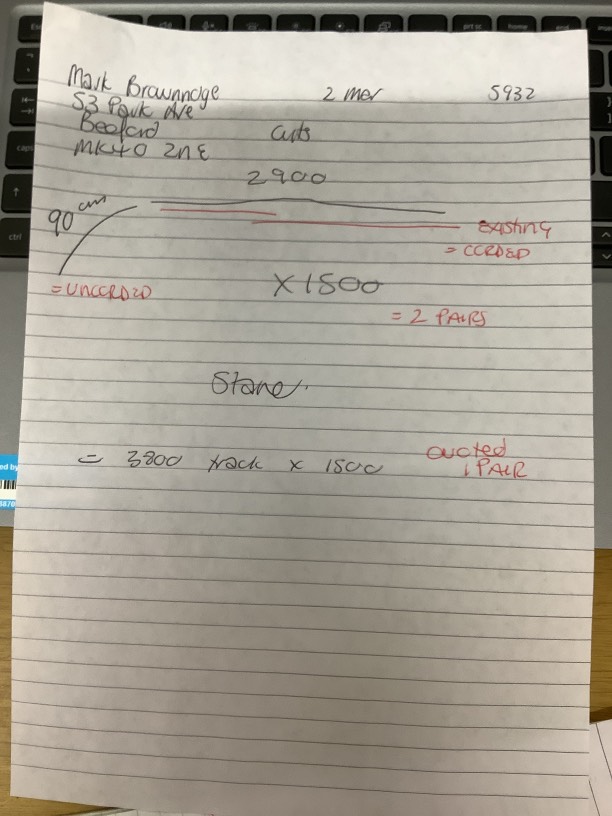 Mark Brownridge 2 mer 5932
53 Park Ave
Bedford curts
MK40 2NE
2900
90 cm
EXISTING
= CORDED
= UNCORDED
X1500
= 2 PAIRS
Stone.
= 3800 track x 1500 QUOTED
1 PAIR